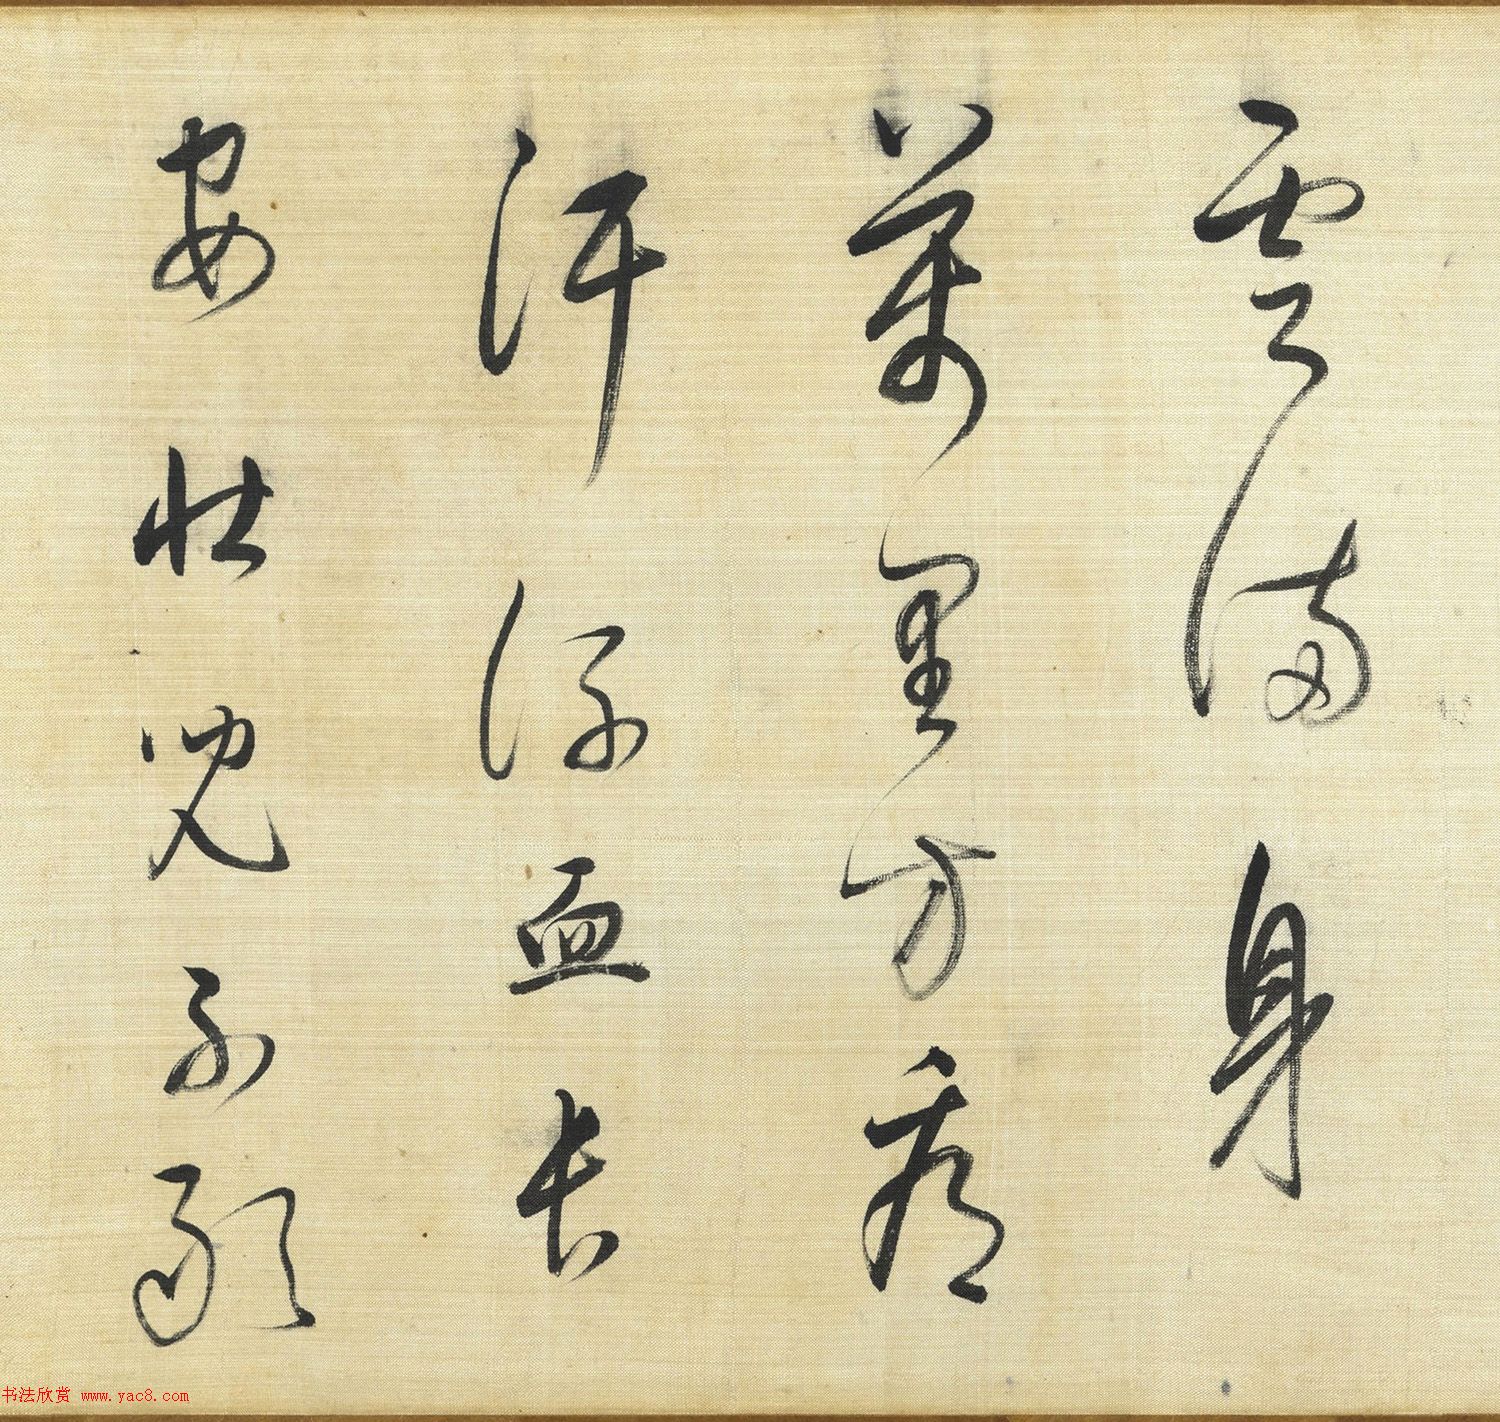 雲滿身
萬里方看
汗流血長
安壯兒不敢
书法欣赏 www.yac8.com